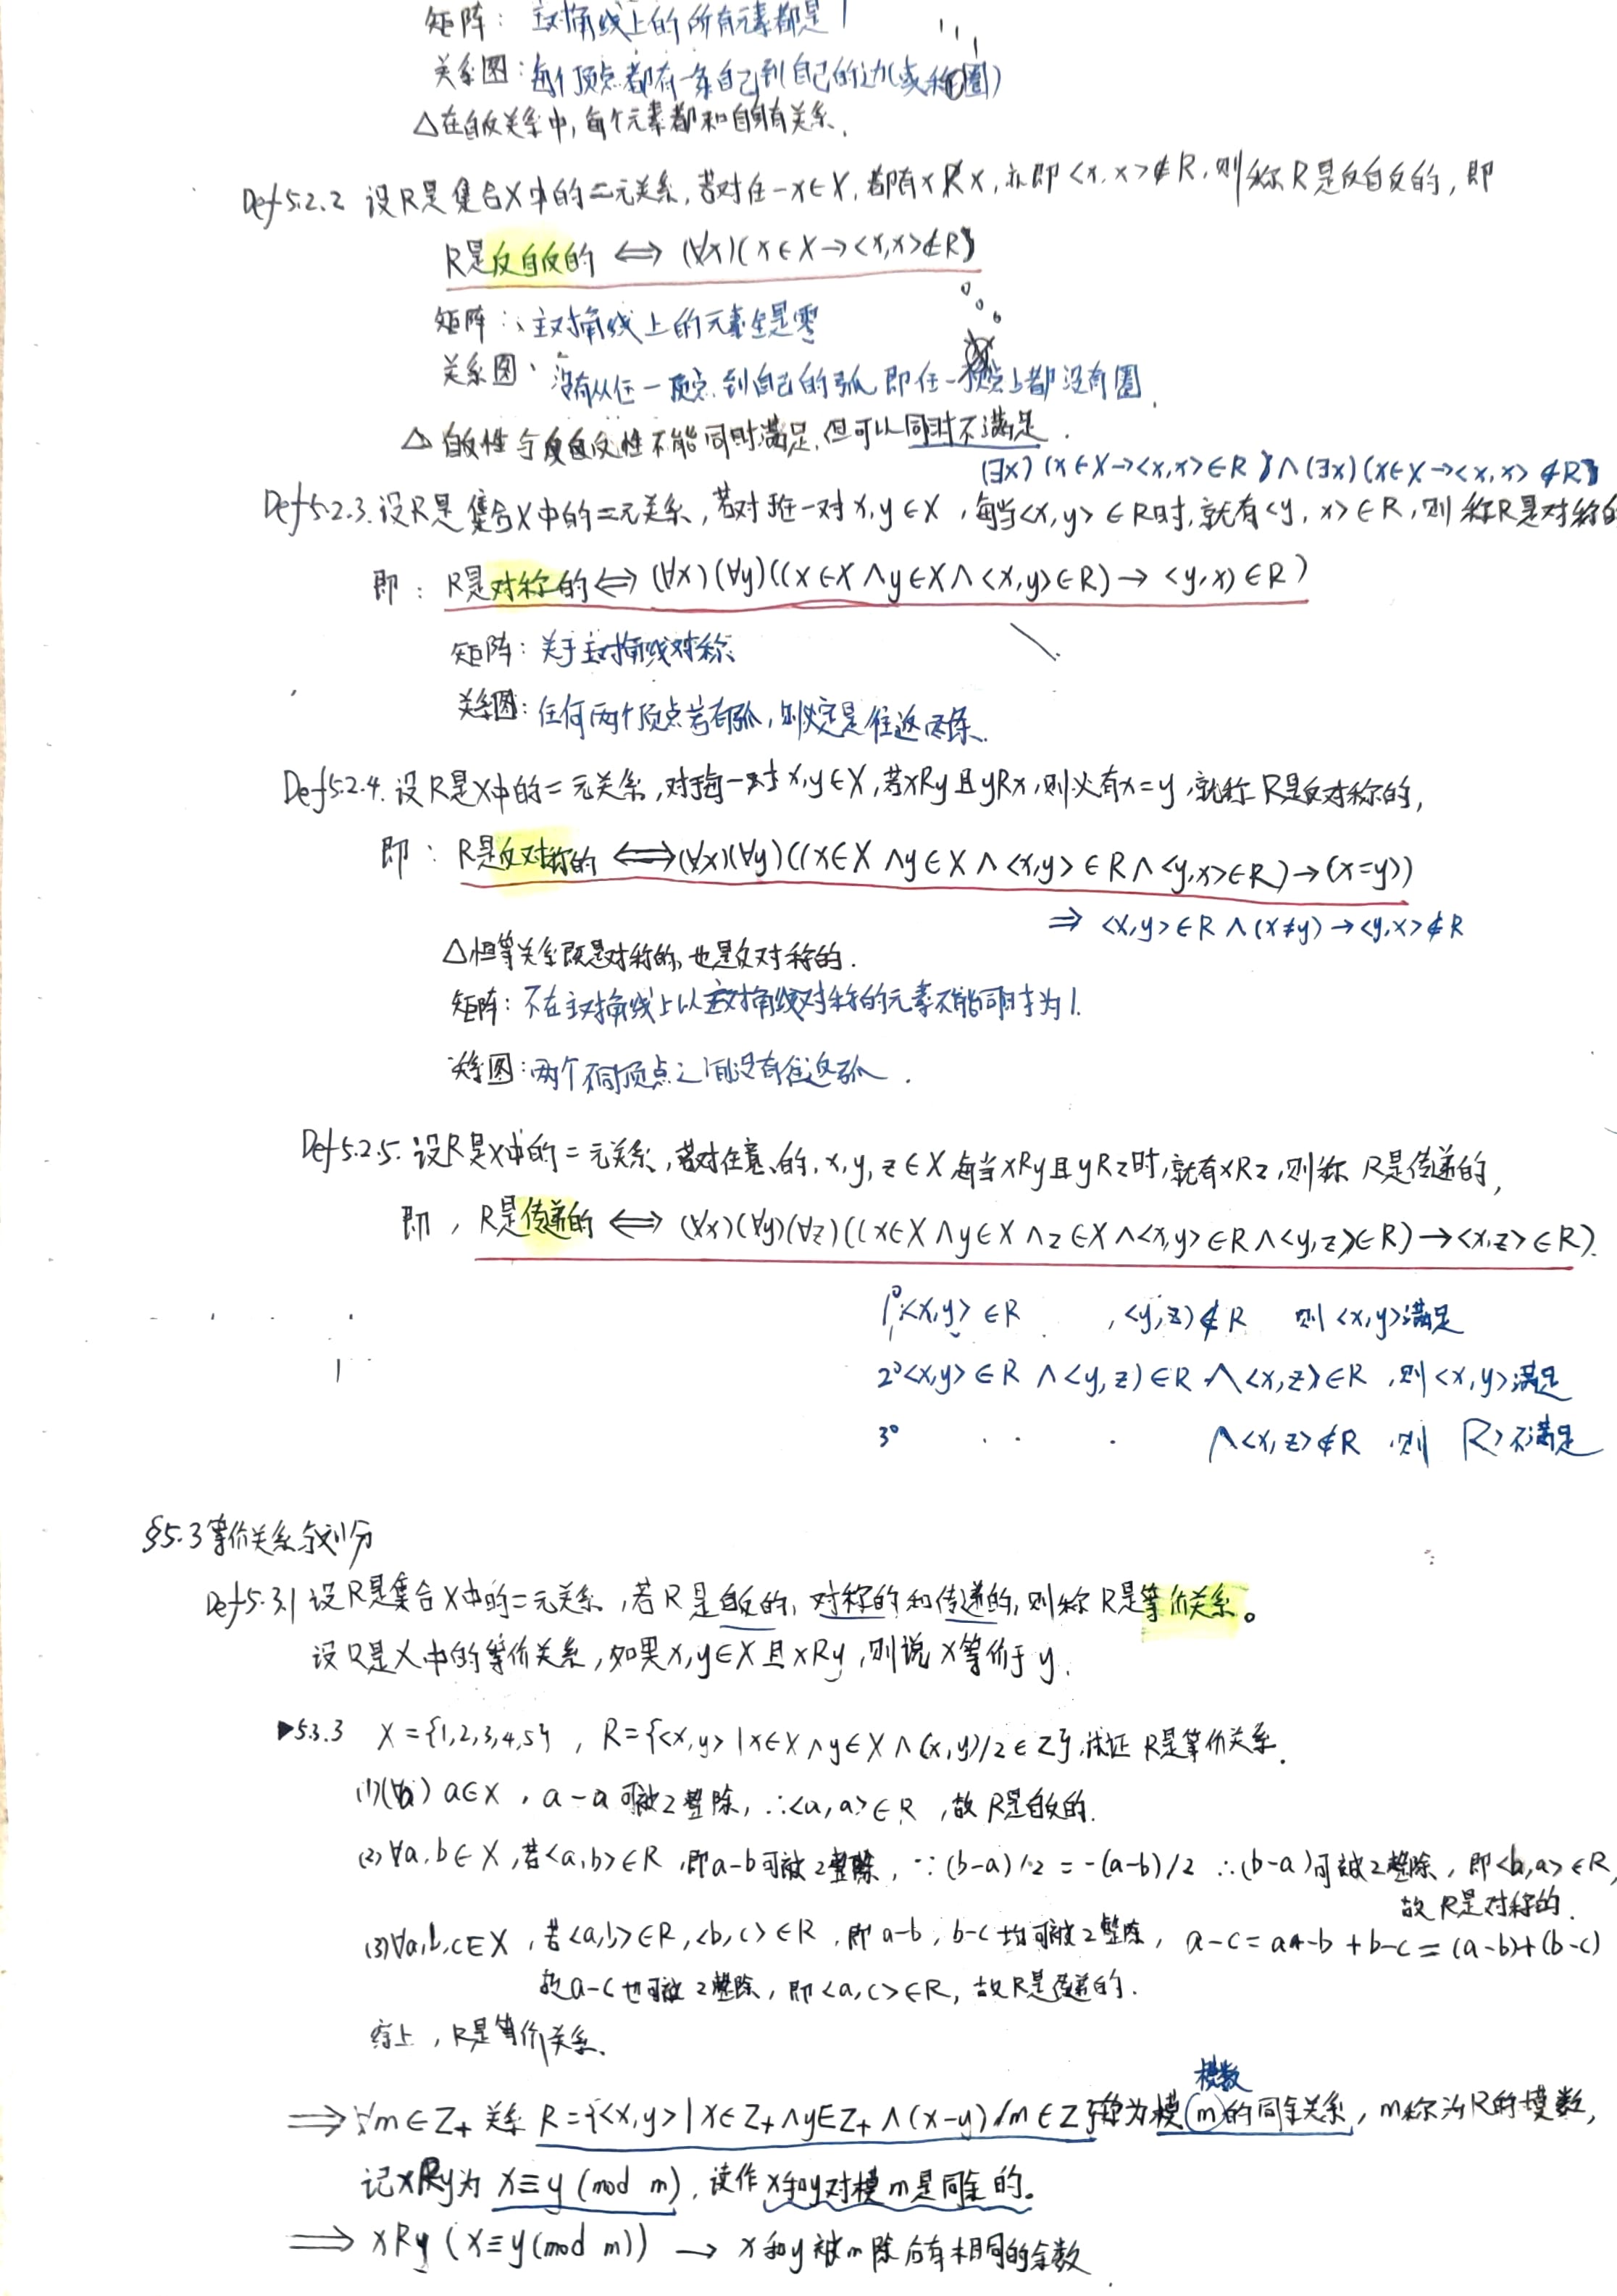 矩阵：主对角线上的所有元素都是1
关系图：每个顶点都有一条自己到自己的边(或称圈)
△在自反关系中,每个元素都和自身有关系.
Def5.2.2 设R是集合X中的二元关系,若对任一x∈X,都有xR̸x,亦即<x,x>∉R,则称R是反自反的,即
R是反自反的 ⟺ (∀x)(x∈X→<x,x>∉R)
矩阵：主对角线上的元素全是零
关系图：没有从任一顶点到自己的弧 即任一顶点上都没有圈.
△ 自反性与反自反性不能同时满足,但可以同时不满足.
(∃x)(x∈X→<x,x>∈R)∧(∃x)(x∈X→<x,x>∉R)
Def5.2.3.设R是集合X中的二元关系,若对任一对x,y∈X,每当<x,y>∈R时,就有<y,x>∈R,则称R是对称的
即：R是对称的⟺(∀x)(∀y)((x∈X∧y∈X∧<x,y>∈R)→<y,x>∈R)
矩阵：关于主对角线对称
关系图：任何两个顶点若有弧,则必定是往返两条.
Def5.2.4.设R是X中的二元关系,对每一对x,y∈X,若xRy且yRx,则必有x=y,就称R是反对称的,
即：R是反对称的⟺(∀x)(∀y)((x∈X∧y∈X∧<x,y>∈R∧<y,x>∈R)→(x=y))
⇒ <x,y>∈R∧(x≠y)→<y,x>∉R
△恒等关系既是对称的,也是反对称的.
矩阵：不在主对角线上以主对角线对称的元素不能同时为1.
关系图：两个不同顶点之间没有往返弧.
Def5.2.5.设R是X中的二元关系,若对任意的,x,y,z∈X 每当xRy且yRz时,就有xRz,则称R是传递的,
即,R是传递的⟺(∀x)(∀y)(∀z)((x∈X∧y∈X∧z∈X∧<x,y>∈R∧<y,z>∈R)→<x,z>∈R).
1°<x,y>∈R ,<y,z>∉R 则<x,y>满足
2°<x,y>∈R∧<y,z>∈R∧<x,z>∈R,则<x,y>满足
3° . . . ∧<x,z>∉R,则 R 不满足
§5.3等价关系与划分
Def5.3.1 设R是集合X中的二元关系,若R是自反的,对称的和传递的,则称R是等价关系。
设R是X中的等价关系,如果x,y∈X且xRy,则说x等价于y.
▶5.3.3 X={1,2,3,4,5},R={<x,y>|x∈X∧y∈X∧(x,y)/2∈Z},试证R是等价关系.
(1)(∀a)a∈X,a-a可被2整除,∴<a,a>∈R,故R是自反的.
(2)∀a,b∈X,若<a,b>∈R,即a-b可被2整除,∵(b-a)/2=-(a-b)/2 ∴(b-a)可被2整除,即<b,a>∈R,
故R是对称的.
(3)∀a,b,c∈X,若<a,b>∈R,<b,c>∈R,即a-b,b-c均可被2整除,a-c=a-b+b-c=(a-b)+(b-c)
故a-c也可被2整除,即<a,c>∈R,故R是传递的.
综上,R是等价关系.
模数
⟹∀m∈Z₊ 关系 R={<x,y>|x∈Z₊∧y∈Z₊∧(x-y)/m∈Z}称为模m的同余关系,m称为R的模数,
记xRy为 x≡y(mod m),读作x和y对模m是同余的。
⟹ xRy(x≡y(mod m))→x和y被m除后有相同的余数.